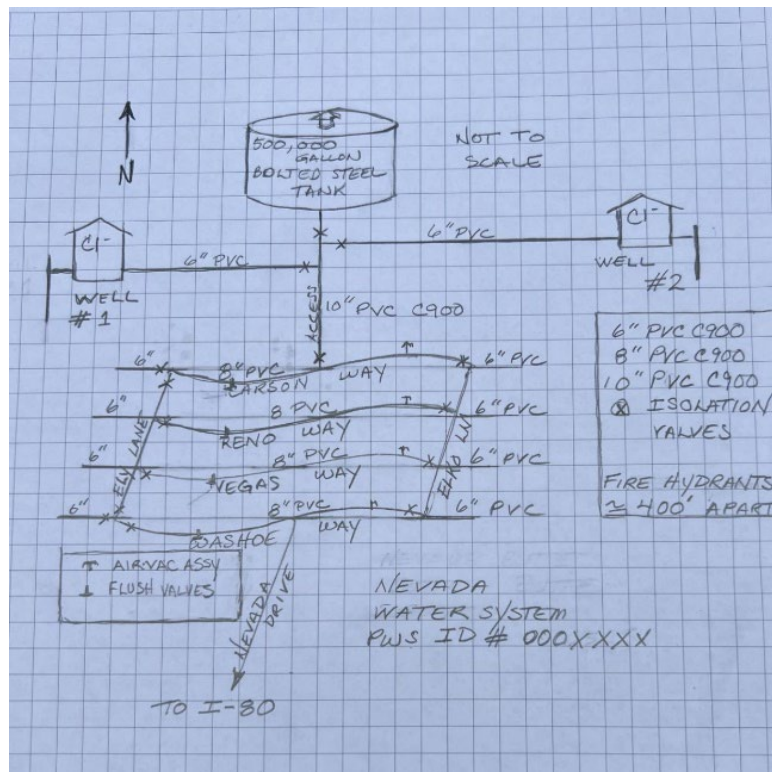 N
500,000
GALLON
BOLTED STEEL
TANK
NOT TO
SCALE
Cl-
WELL
#1
6" PVC
6" PVC
Cl-
WELL
#2
ACCESS
10" PVC C900
6"
8" PVC
CARSON
WAY
6" PVC
6"
8 PVC
RENO
WAY
6" PVC
6"
8" PVC
VEGAS
WAY
6" PVC
6"
8" PVC
WASHOE
WAY
6" PVC
ELY LANE
ELKO LN
6" PVC C900
8" PVC C900
10" PVC C900
ISOLATION
VALVES
FIRE HYDRANTS
≈ 400' APART
AIR-VAC ASSY
FLUSH VALVES
NEVADA
DRIVE
TO I-80
NEVADA
WATER SYSTEM
PWS ID # 000XXXX